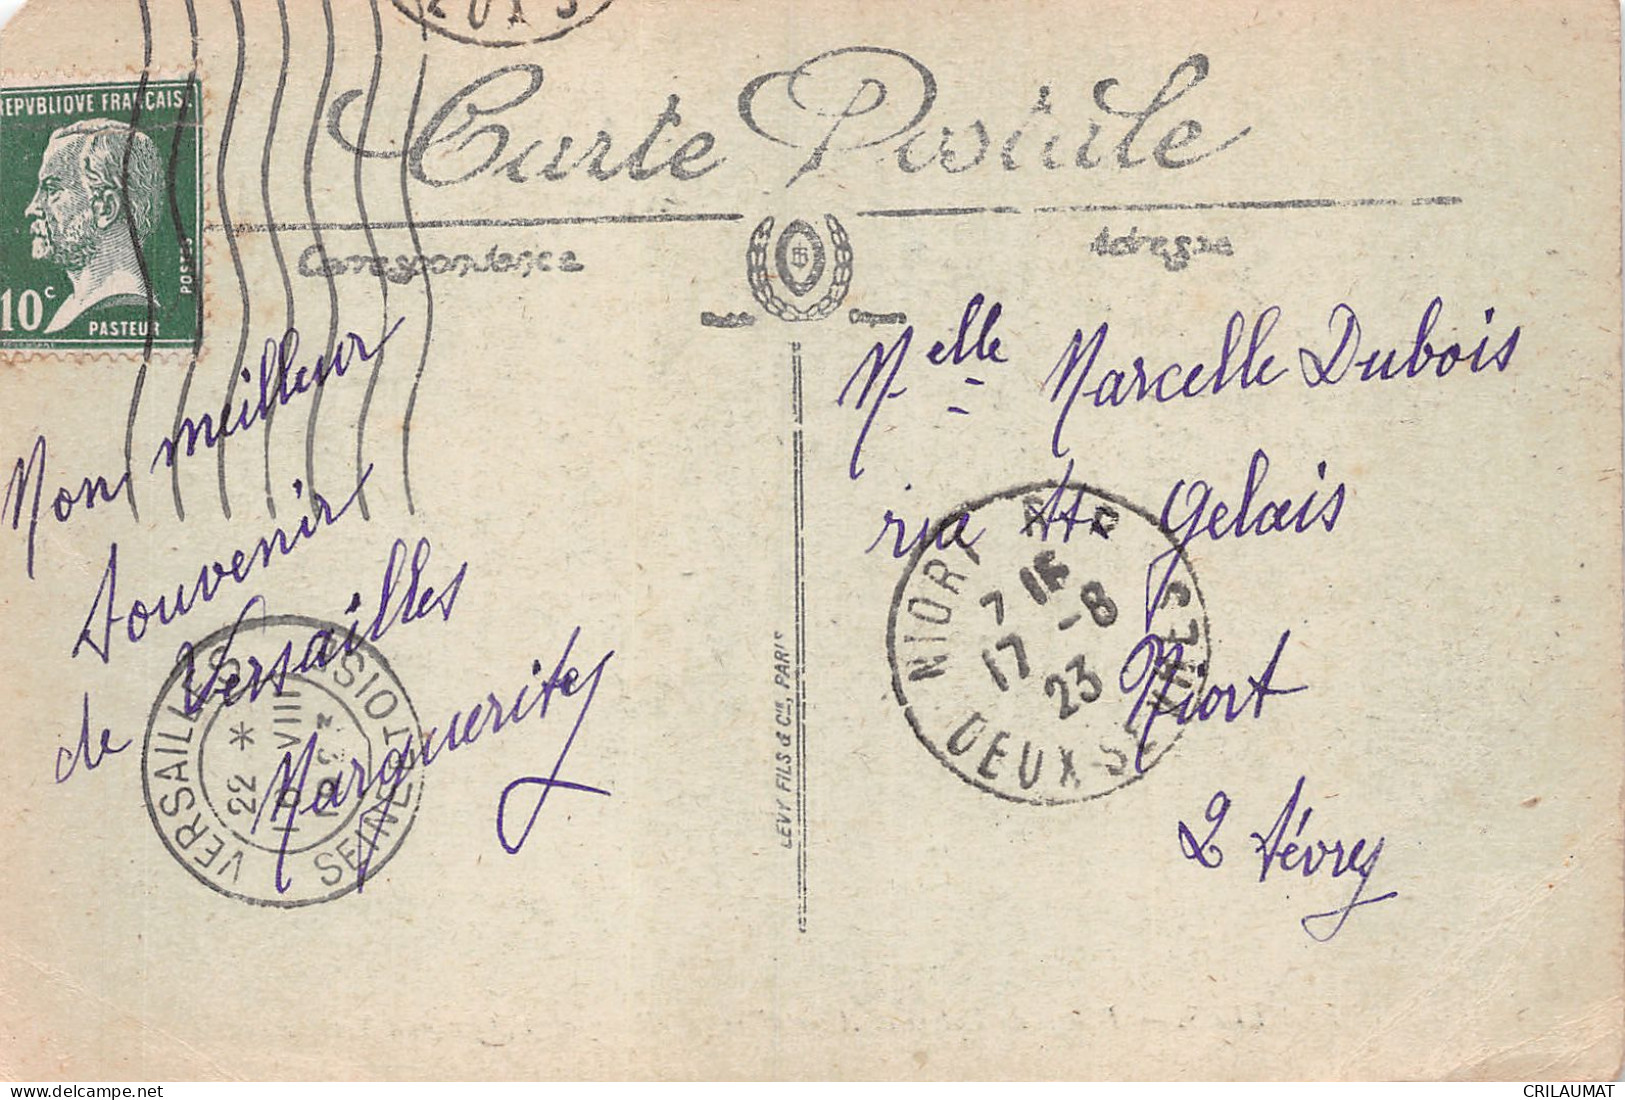 2UX S
REPVBLIQVE FRANÇAISE
POSTES
10c
PASTEUR
Carte Postale
Correspondance
Adresse
Mon meilleur
souvenir
de Versailles
Marguerite
VERSAILLES
22 *
VIII
SEINE ET OISE
LEVY FILS & Cie, PARIS
Melle Marcelle Dubois
rue St Gelais
Niort
2 Sèvres
NIORT R.P
7 15
17 -8
23
DEUX SEVRES
CRILAUMAT